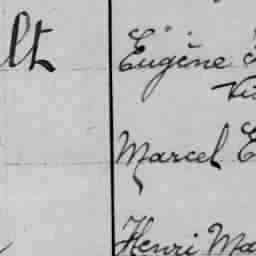 lt Eugène
Marcel E
Henri Ma